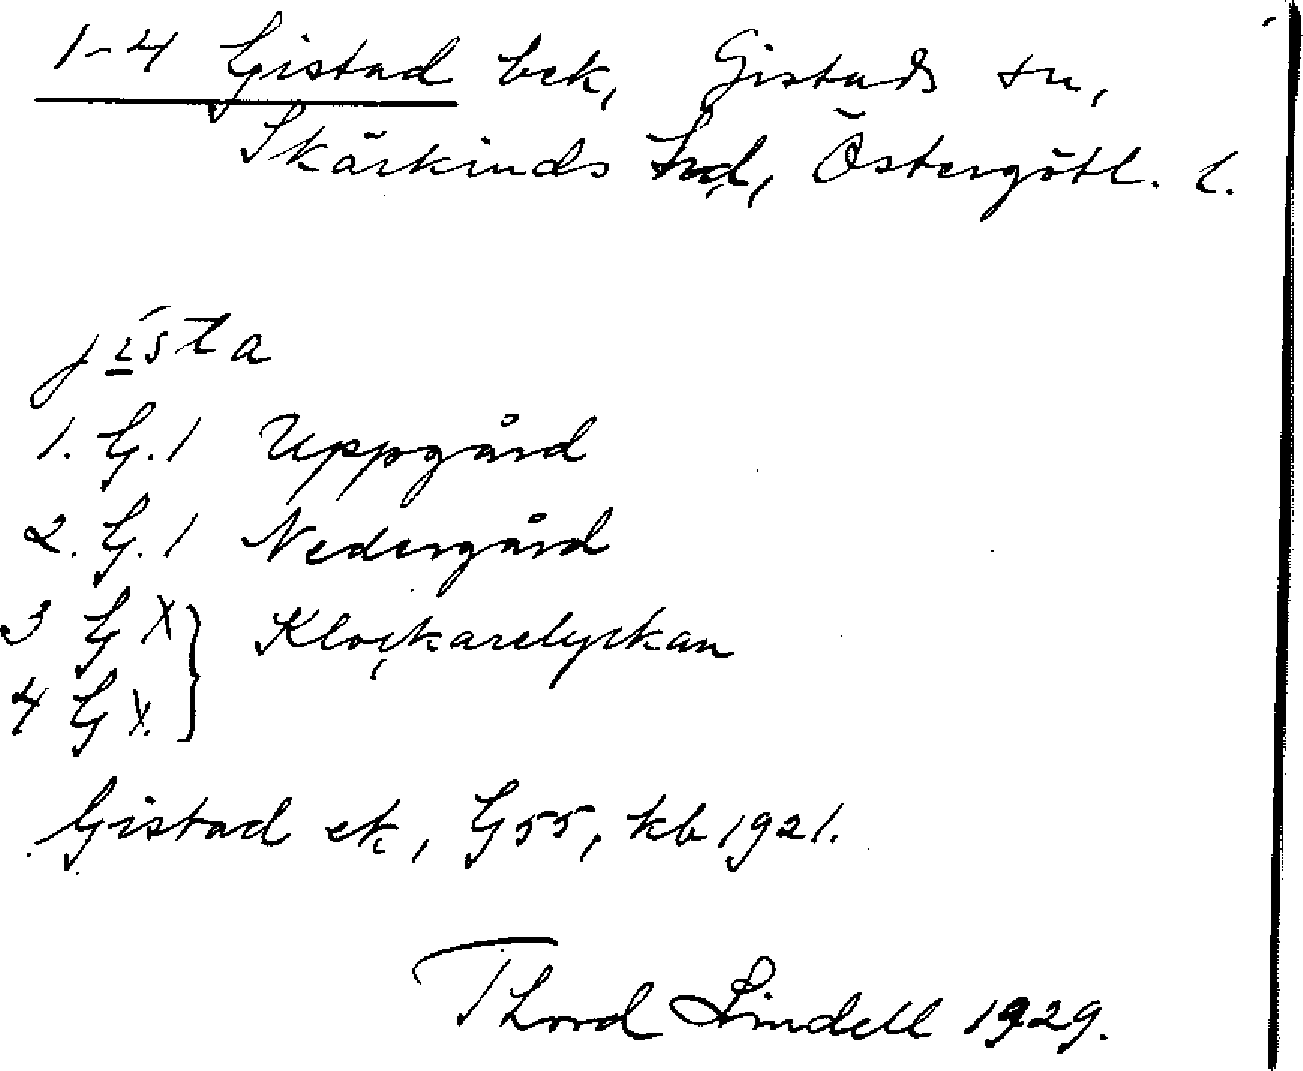 1-4 Gistad bek, Gistads sn,
Skärkinds hd, Östergötl. l.
jista
1. G. 1 Uppgård
2. G. 1 Nedergård
3 G X } Klockarelyckan
4 G X.
Gistad ek, G55, kb 1921.
Thord Lindell 1929.